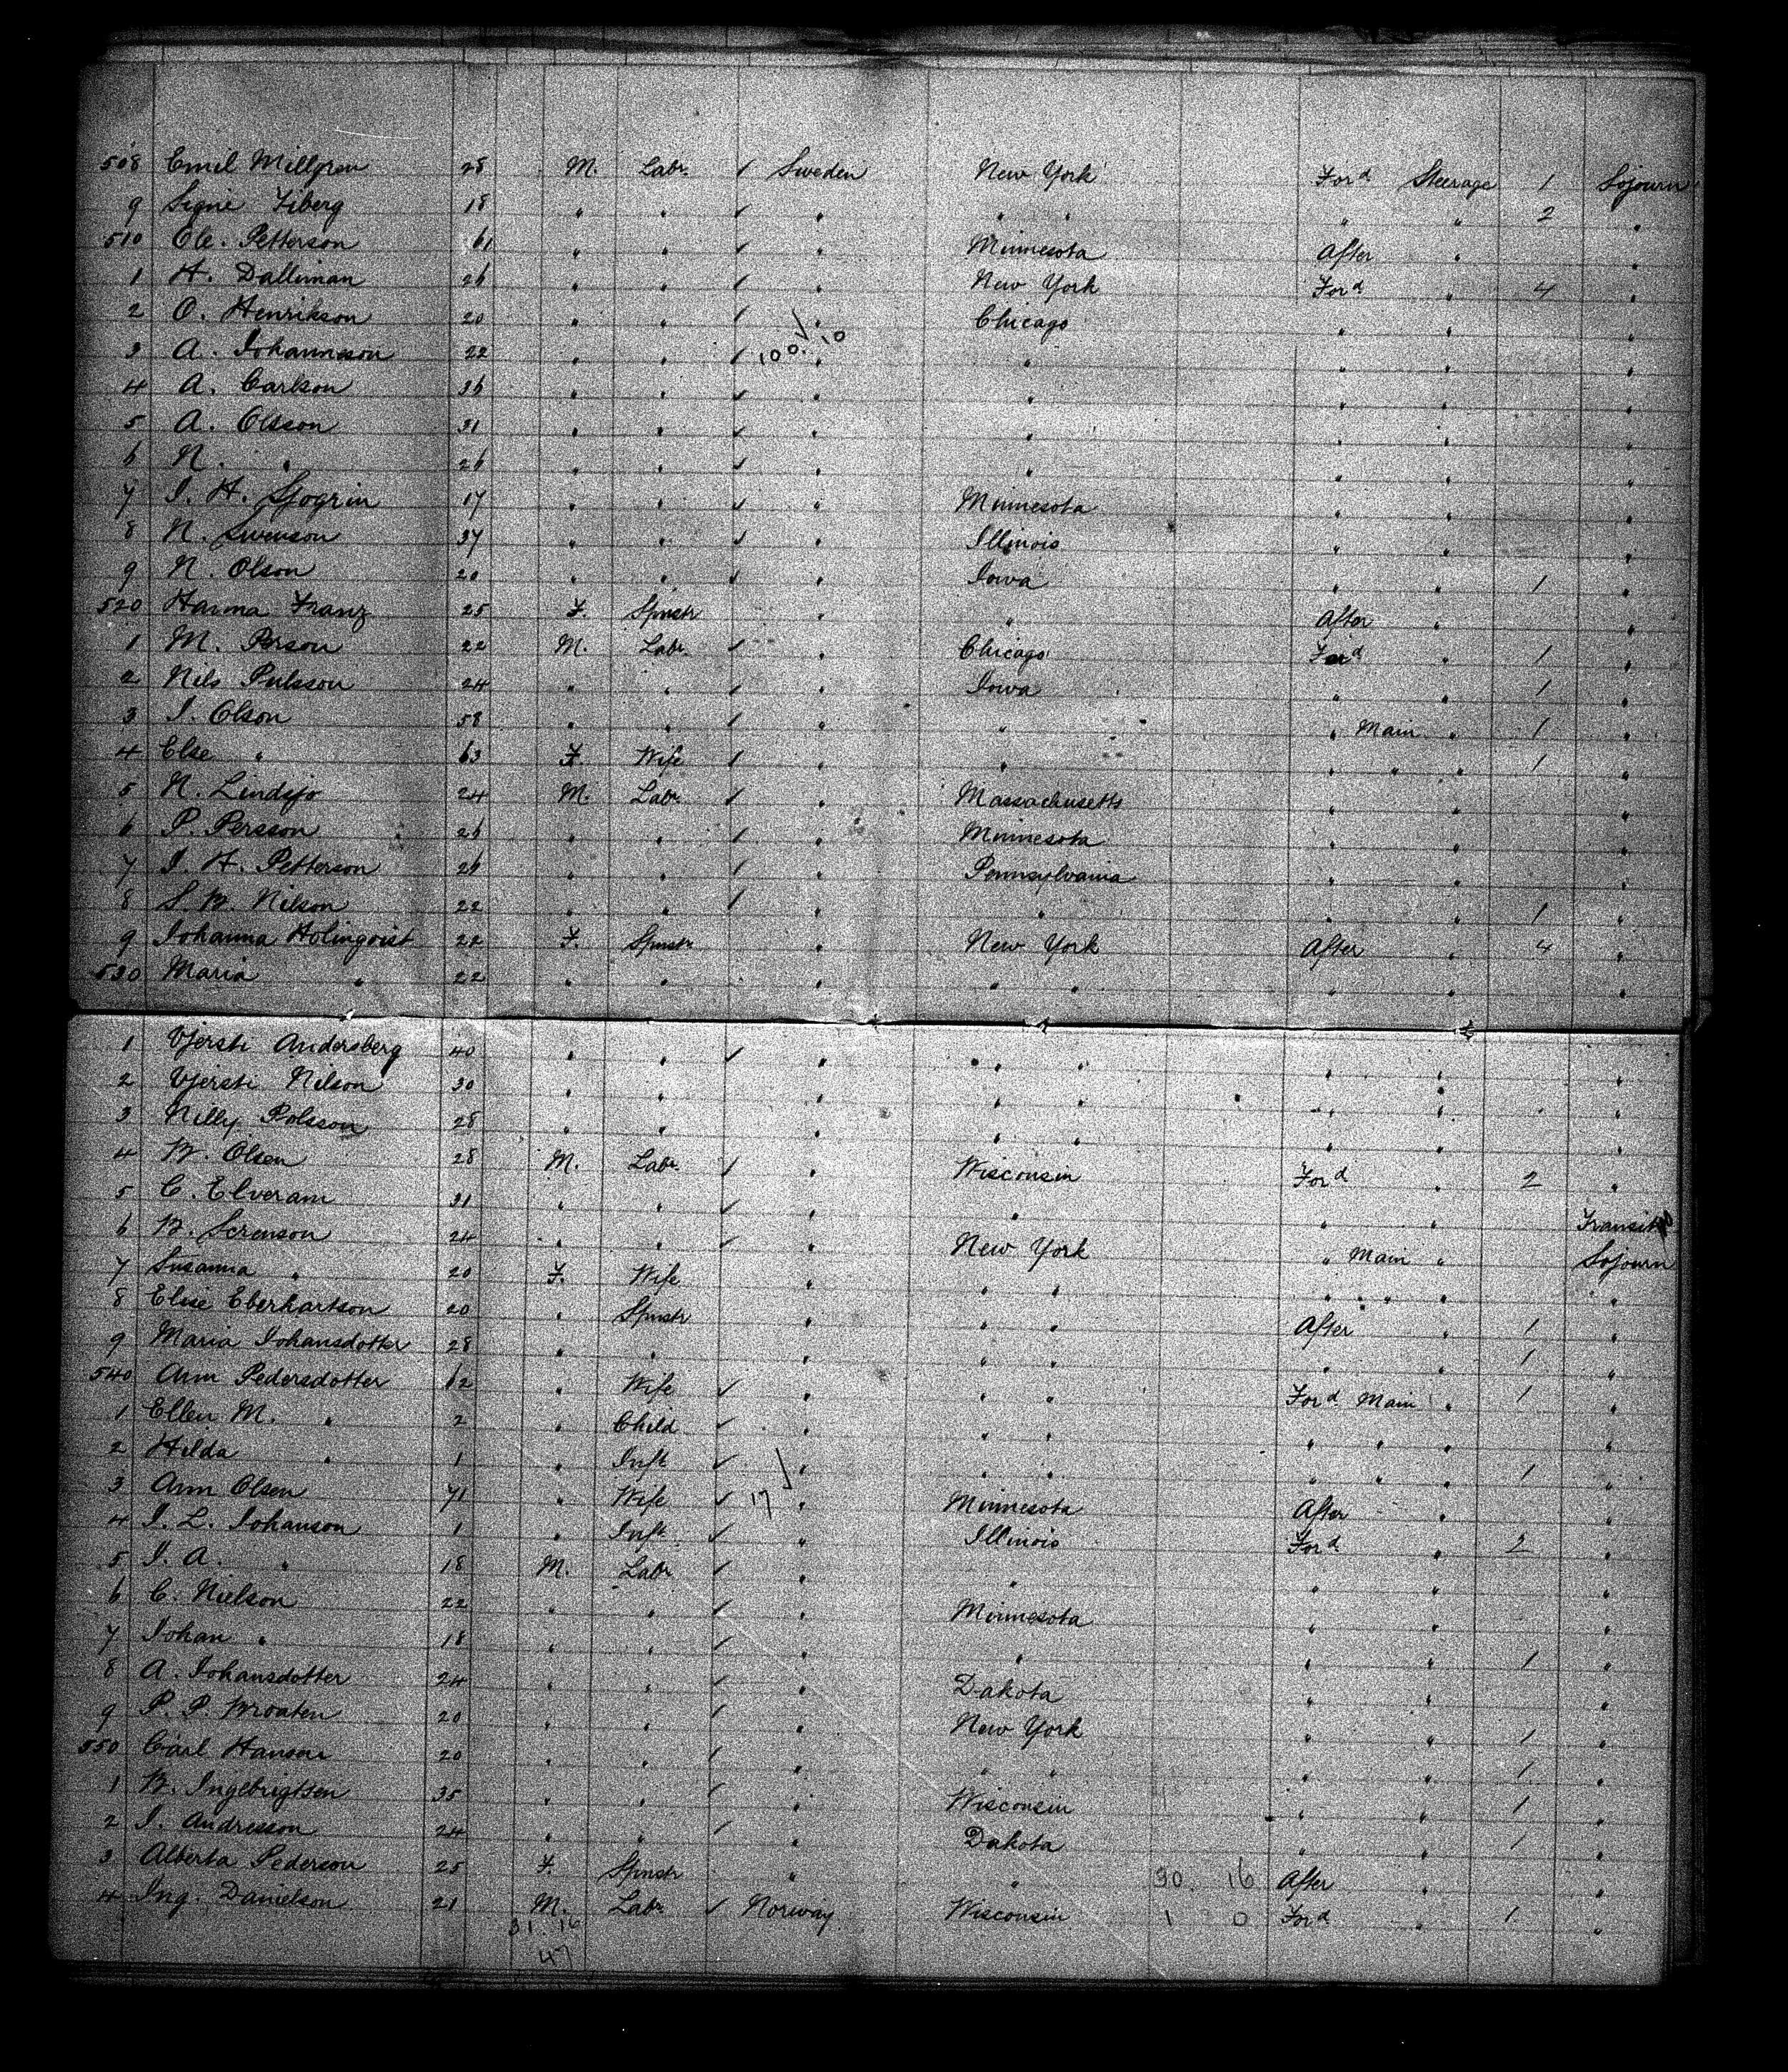 508 Emil Millgren 28 M. Labr ✓ Sweden New York Ford Steerage 1 Sojourn
9 Signe Fiberg 18 " " ✓ " " " " " 2 "
510 Ole. Petterson 61 " " ✓ " Minnesota After " "
1 H. Dalliman 26 " " ✓ " New York Ford " 4 "
2 O. Henrikson 20 " " ✓ " Chicago " " "
3 A. Johanneson 22 " " ✓ 100. 10 " " " " "
4 A. Carlson 36 " " ✓ " " " " "
5 A. Olsson 31 " " ✓ " " " " "
6 N. " 26 " " ✓ " " " " "
7 I. H. Sjogrin 17 " " ✓ " Minnesota " " "
8 N. Swenson 37 " " ✓ " Illinois " " "
9 N. Olson 20 " " ✓ " Iowa " " 1 "
520 Hanna Franz 25 F. Spinstr " " After " "
1 M. Person 22 M. Labr ✓ " Chicago Ford " 1 "
2 Nils Pulsson 24 " " ✓ " Iowa " " 1 "
3 I. Olson 58 " " ✓ " " " Main " 1 "
4 Else " 63 F. Wife ✓ " " " " " 1 "
5 N. Lindsjo 24 M. Labr ✓ " Massachusetts " " "
6 P. Persson 26 " " ✓ " Minnesota " " "
7 I. H. Petterson 26 " " ✓ " Pennsylvania " " "
8 S. B. Nilson 22 " " ✓ " " " " 1 "
9 Johanna Holmqvist 22 F. Spinstr " New York After " 4 "
530 Maria " 22 " " " " " " " "
1 Kjersti Andersberg 40 " " ✓ " " " " " "
2 Kjersti Nilson 30 " " " " " " " "
3 Nilly Polsson 28 " " " " " " " "
4 B. Olsen 28 M. Labr ✓ " Wisconsin Ford " 2 "
5 C. Elveram 31 " " ✓ " " " " Transit
6 B. Sorenson 24 " " ✓ " New York " Main " Sojourn
7 Susanna " 20 F. Wife " " " " " " "
8 Elise Eberhartson 20 " Spinstr " " " After " 1 "
9 Maria Johansdotter 28 " " " " " " " 1 "
540 Ann Pedersdotter 62 " Wife ✓ " " " Ford Main " 1 "
1 Ellen M. " 2 " Child ✓ " " " " " " "
2 Hilda " 1 " Inft ✓ " " " " " " 1 "
3 Ann Olsen 71 " Wife ✓ 17 " Minnesota After " "
4 I. L. Johanson 1 " Inft ✓ " Illinois Ford " 2 "
5 I. A. " 18 M. Labr ✓ " " " " "
6 C. Nielson 22 " " ✓ " Minnesota " " "
7 Johan " 18 " " ✓ " " " " 1 "
8 A. Johansdotter 24 " " ✓ " Dakota " " "
9 P. P. Broaten 20 " " ✓ " New York " " 1 "
550 Carl Hanson 20 " " ✓ " " " " " 1 "
1 B. Ingebrigtsen 35 " " ✓ " Wisconsin " " 1 "
2 I. Andresson 24 " " ✓ " Dakota " " 1 "
3 Alberta Pederson 25 F. Spinstr " " 30. 16 After " "
4 Ing. Danielson 21 M. Labr ✓ Norway Wisconsin 1 0 Ford " 1 "
31. 16
47